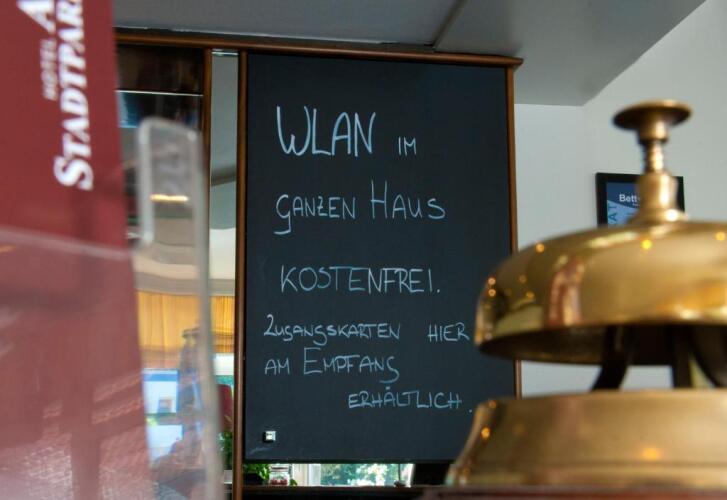 HOTEL
STADTPAR
WLAN IM
GANZEN HAUS
KOSTENFREI.
ZUGANGSKARTEN HIER
AM EMPFANG
ERHÄLTLICH.
Bett